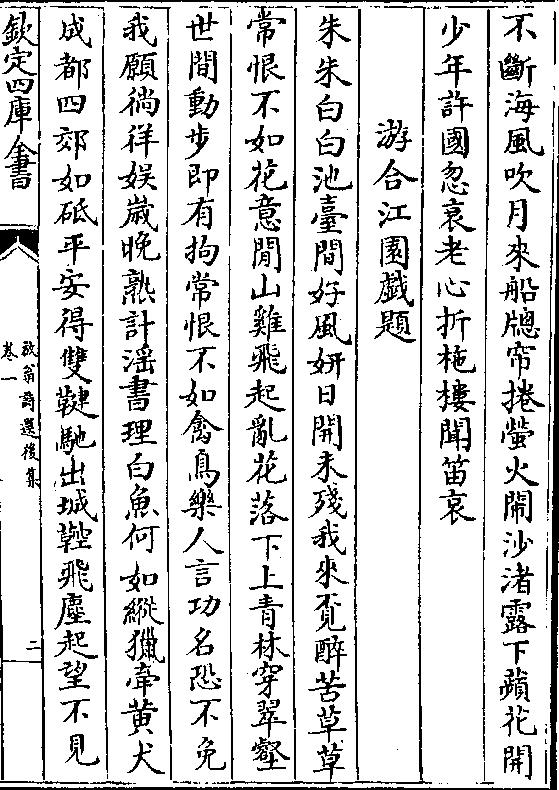 不斷海風吹月來船牕帘捲螢火鬧沙渚露下蘋花開
少年許國忽衰老心折柂樓聞笛哀
游合江園戲題
朱朱白白池臺間好風妍日開未殘我來不覓醉苦草草
常恨不如花意閒山雞飛起亂花落下上青林穿翠壑
世間動步即有拘常恨不如禽鳥樂人言功名恐不免
我願徜徉娛歲晚熟計滛書理白魚何如縱獵牽黃犬
成都四郊如砥平安得雙鞬馳出城鞚飛塵起望不見
欽定四庫全書
放翁詩選後集
卷一
二